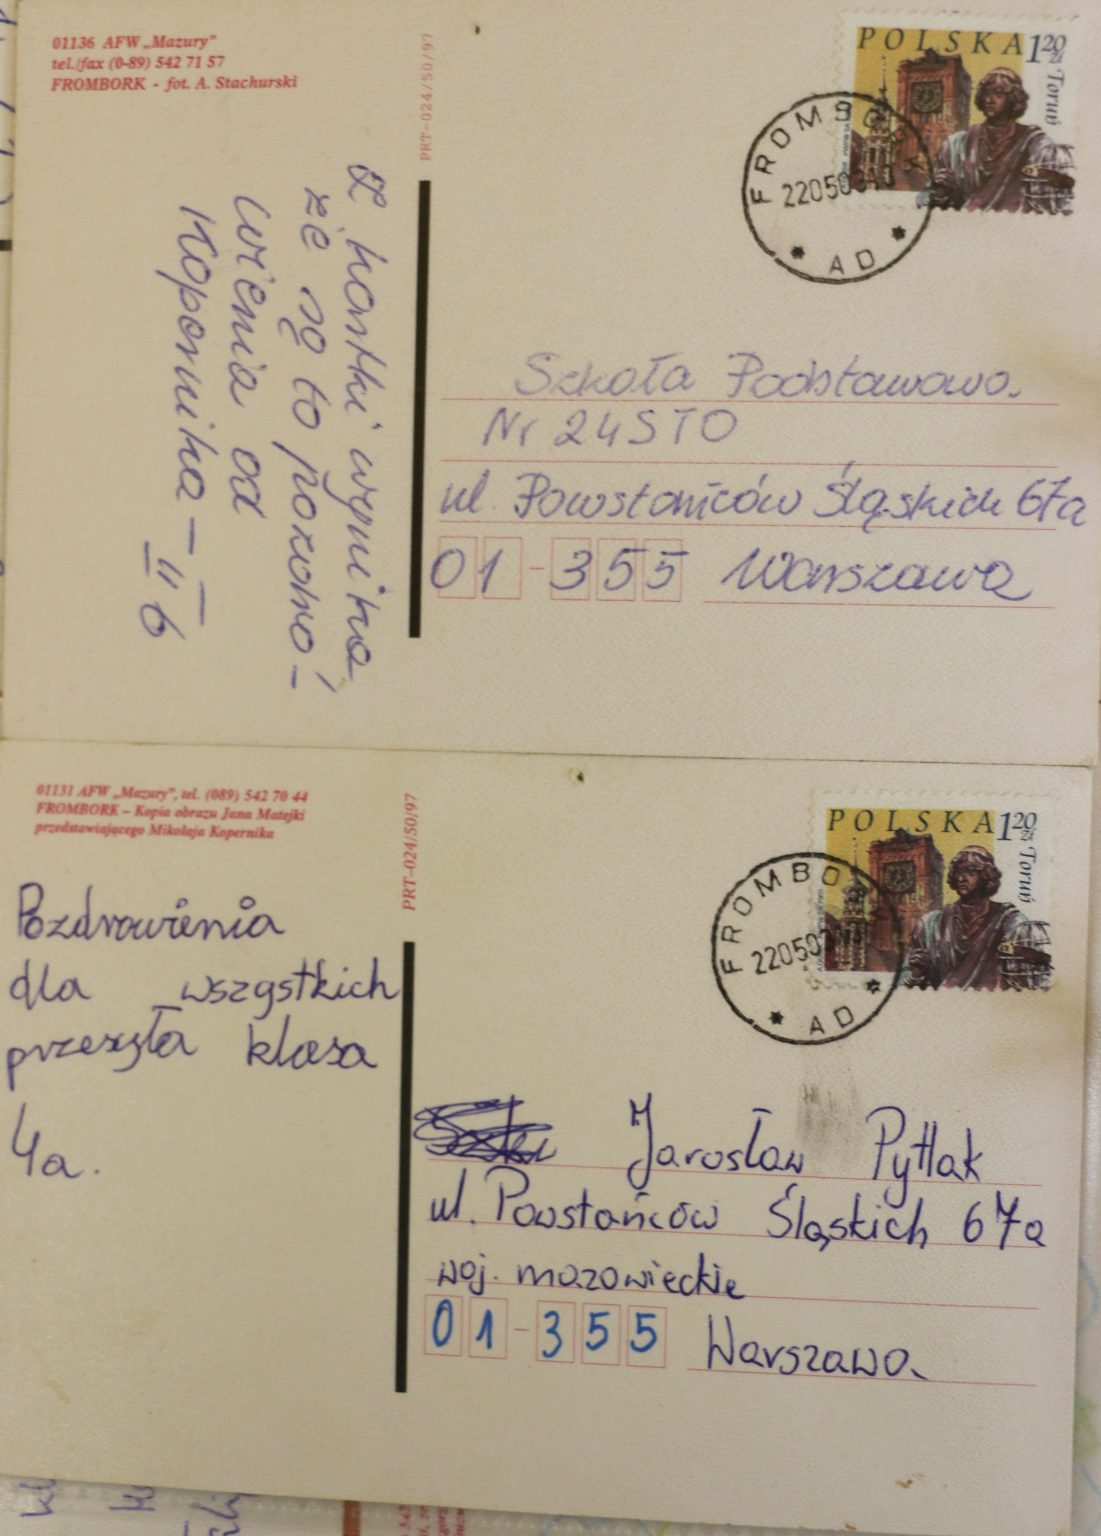 01136 AFW „Mazury”
tel./fax (0-89) 542 71 57
FROMBORK - fot. A. Stachurski
PRT-024/50/97
POLSKA 1 20 zł
Toruń
FROMBORK
220503
* AD *
Z kartki wynika
że są to pozdro-
wienia od
Kopernika –
II 6
Szkoła Podstawowa
Nr 24 STO
ul. Powstańców Śląskich 67a
01-355 Warszawa
01131 AFW „Mazury”, tel. (089) 542 70 44
FROMBORK – Kopia obrazu Jana Matejki
przedstawiającego Mikołaja Kopernika
PRT-024/50/97
POLSKA 1 20 zł
Toruń
FROMBO
220503
* AD *
Pozdrowienia
dla wszystkich
przeszła klasa
4a.
Jarosław Pytlak
ul. Powstańców Śląskich 67a
woj. mazowieckie
01-355 Warszawa